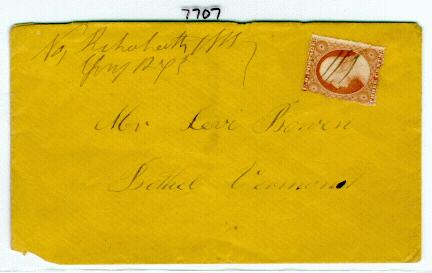 7707
No Rehoboth Mss
Mr Levi Bowen
Bethel Vermont